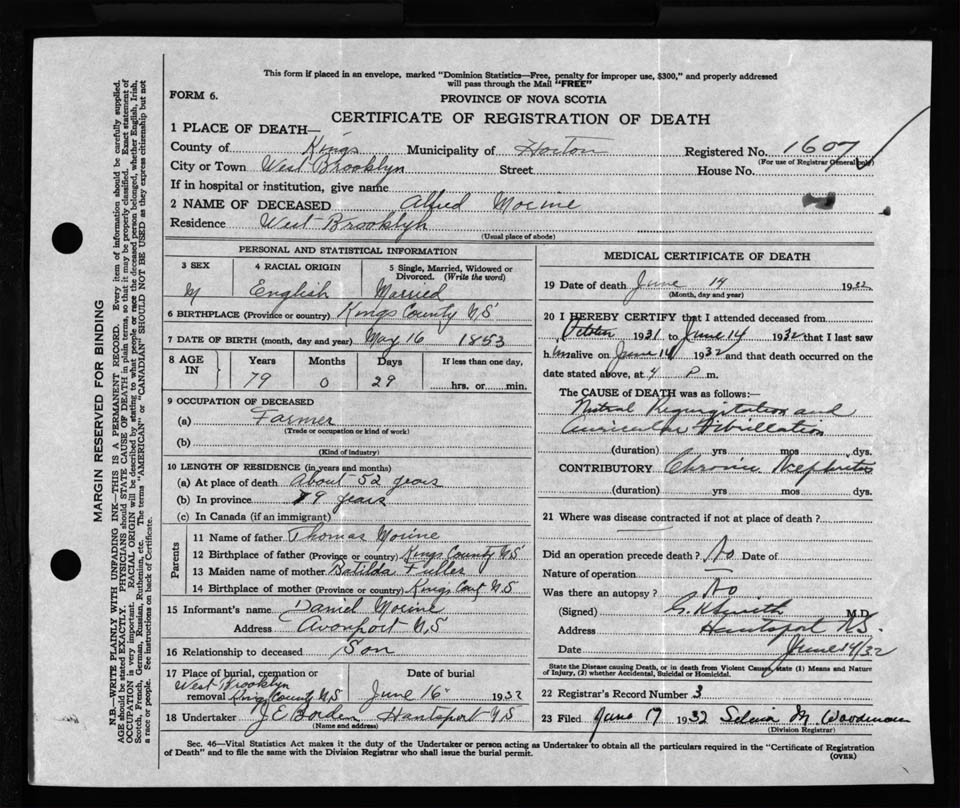 This form if placed in an envelope, marked "Dominion Statistics—Free, penalty for improper use, $300," and properly addressed
will pass through the Mail "FREE"
FORM 6.
PROVINCE OF NOVA SCOTIA
CERTIFICATE OF REGISTRATION OF DEATH
1 PLACE OF DEATH—
County of Kings Municipality of Horton Registered No. 1607
(For use of Registrar General only)
City or Town West Brooklyn Street House No.
If in hospital or institution, give name
2 NAME OF DECEASED Alfred
Residence West Brooklyn
(Usual place of abode)
PERSONAL AND STATISTICAL INFORMATION
3 SEX 4 RACIAL ORIGIN 5 Single, Married, Widowed or Divorced. (Write the word)
M English Married
6 BIRTHPLACE (Province or country) Kings County N S
7 DATE OF BIRTH (month, day and year) May 16 1853
8 AGE IN Years Months Days If less than one day,
79 0 29 hrs. or min.
9 OCCUPATION OF DECEASED
(a) Farmer
(Trade or occupation or kind of work)
(b)
(Kind of industry)
10 LENGTH OF RESIDENCE (in years and months)
(a) At place of death About 52 years
(b) In province 79 years
(c) In Canada (if an immigrant)
Parents
11 Name of father Thomas
12 Birthplace of father (Province or country) Kings County N S
13 Maiden name of mother Batilda Fuller
14 Birthplace of mother (Province or country) Kings Count N S
15 Informant's name Daniel
Address Avonport N, S
16 Relationship to deceased Son
17 Place of burial, cremation or removal West Brooklyn Kings County N S Date of burial June 16 1932
18 Undertaker J E Borden Hantsport N S
(Name and address)
MEDICAL CERTIFICATE OF DEATH
19 Date of death June 14 1932
(Month, day and year)
20 I HEREBY CERTIFY that I attended deceased from
1931 to June 14 1932 that I last saw
him alive on June 14 1932 and that death occurred on the
date stated above, at 4 P m.
The CAUSE OF DEATH was as follows:—
Mitral Regurgitation and
Auricular Fibrillation
(duration) yrs mos dys.
CONTRIBUTORY Chronic Nephritis
(duration) yrs mos dys.
21 Where was disease contracted if not at place of death?
Did an operation precede death? No Date of
Nature of operation —
Was there an autopsy? No
(Signed) Smith M.D.
Address Hantsport N.S.
Date June 14/32
State the Disease causing Death, or in death from Violent Causes, state (1) Means and Nature
of Injury, (2) whether Accidental, Suicidal or Homicidal.
22 Registrar's Record Number 3
23 Filed June 17 1932 M. Woodman
(Division Registrar)
Sec. 46—Vital Statistics Act makes it the duty of the Undertaker or person acting as Undertaker to obtain all the particulars required in the "Certificate of Registration
of Death" and to file the same with the Division Registrar who shall issue the burial permit.
(OVER)
MARGIN RESERVED FOR BINDING
N.B.—WRITE PLAINLY WITH UNFADING INK—THIS IS A PERMANENT RECORD. Every item of information should be carefully supplied.
AGE should be stated EXACTLY. PHYSICIANS should STATE CAUSE OF DEATH in plain terms, so that it may be properly classified. Exact statement of
OCCUPATION is very important. RACIAL ORIGIN will be described by stating to what people or race the deceased person belonged, whether English, Irish,
Scotch, French, German, Russian, Ruthenian, etc. The terms "AMERICAN" or "CANADIAN" SHOULD NOT BE USED as they express citizenship but not
a race or people. See instructions on back of Certificate.